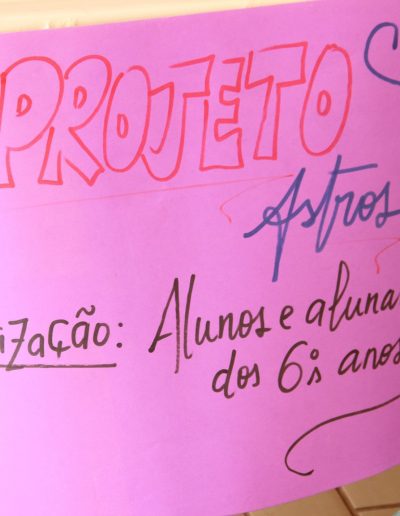 PROJETO
Astros
ização: Alunos e aluna
dos 6ºs anos